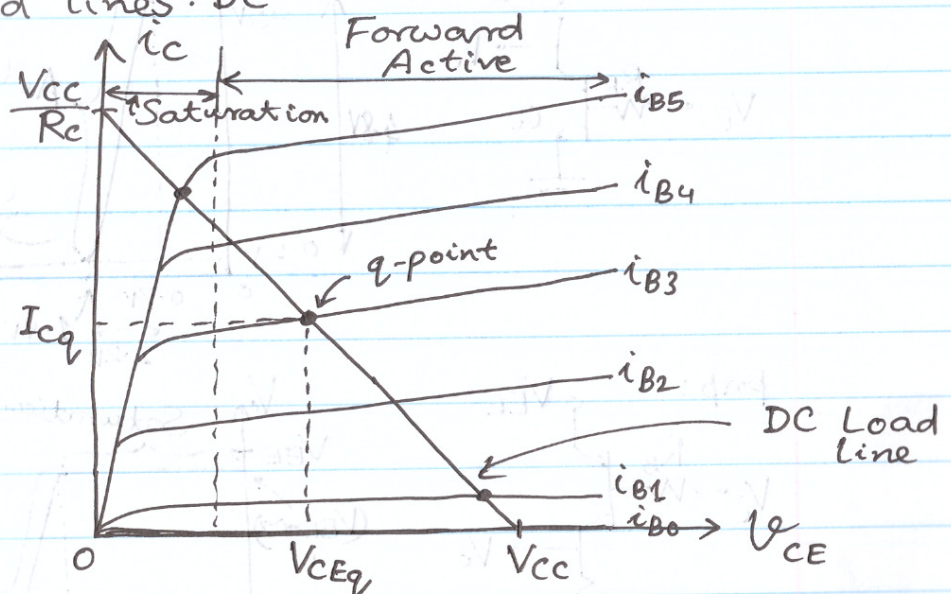 d lines. DC
i_C
Forward
Active
V_CC
R_C
Saturation
i_B5
i_B4
q-point
i_B3
I_Cq
i_B2
DC Load
line
i_B1
i_B0
0
V_CEq
V_CC
v_CE